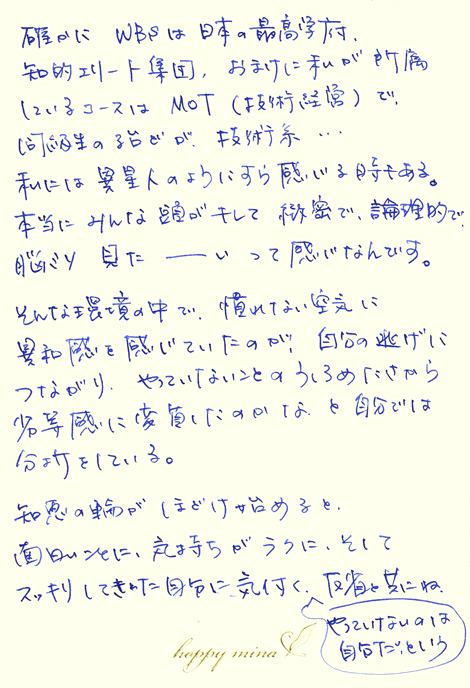 確かに WBSは日本の最高学府、
知的エリート集団、おまけに私が所属
しているコースは MOT（技術経営）で、
同級生の殆どが、技術系…
私には異星人のようにすら感じる時もある。
本当にみんな頭がキレて 緻密で、論理的で、
脳ミソ 見た――い って 感じなんです。
そんな環境の中で、慣れない空気に
異和感を感じていたのが、自分の逃げに
つながり、やっていないことのうしろめたさから
劣等感に変質したのかな と自分では
分析をしている。
知恵の輪が ほどけ始めると、
面白いことに、気持ちが ラクに、そして
スッキリしてきた自分に気付く、反省と共にね
やっていないのは
自分だ、という
happy mina